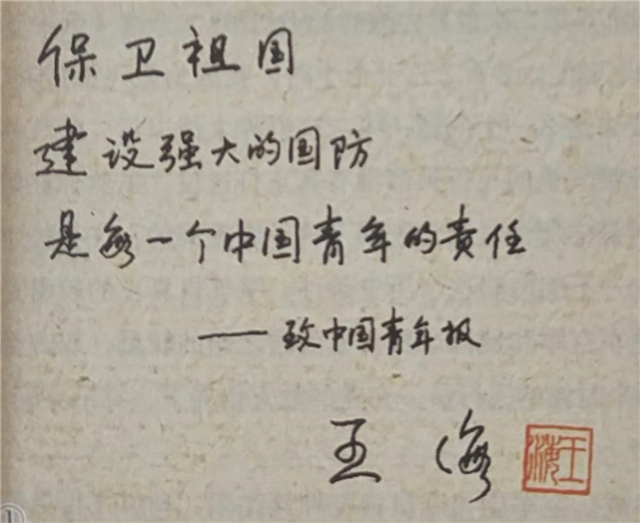 保卫祖国
建设强大的国防
是每一个中国青年的责任
——致中国青年报
王海
王海
①